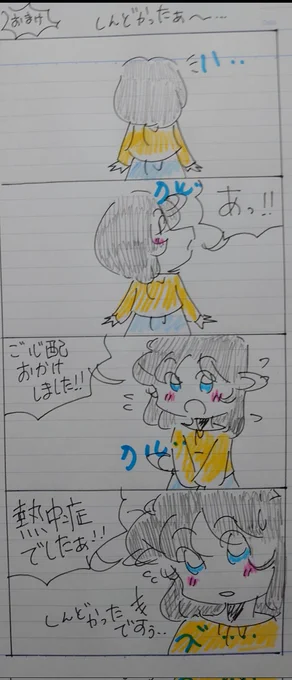 おまけ
しんどかったぁ〜…
ハ‥
クルッ
あっ!!
ご心配
おかけ
しました!!
クル‥
熱中症
でしたぁ!!
しんどかった
ですぅ‥
ペ‥‥